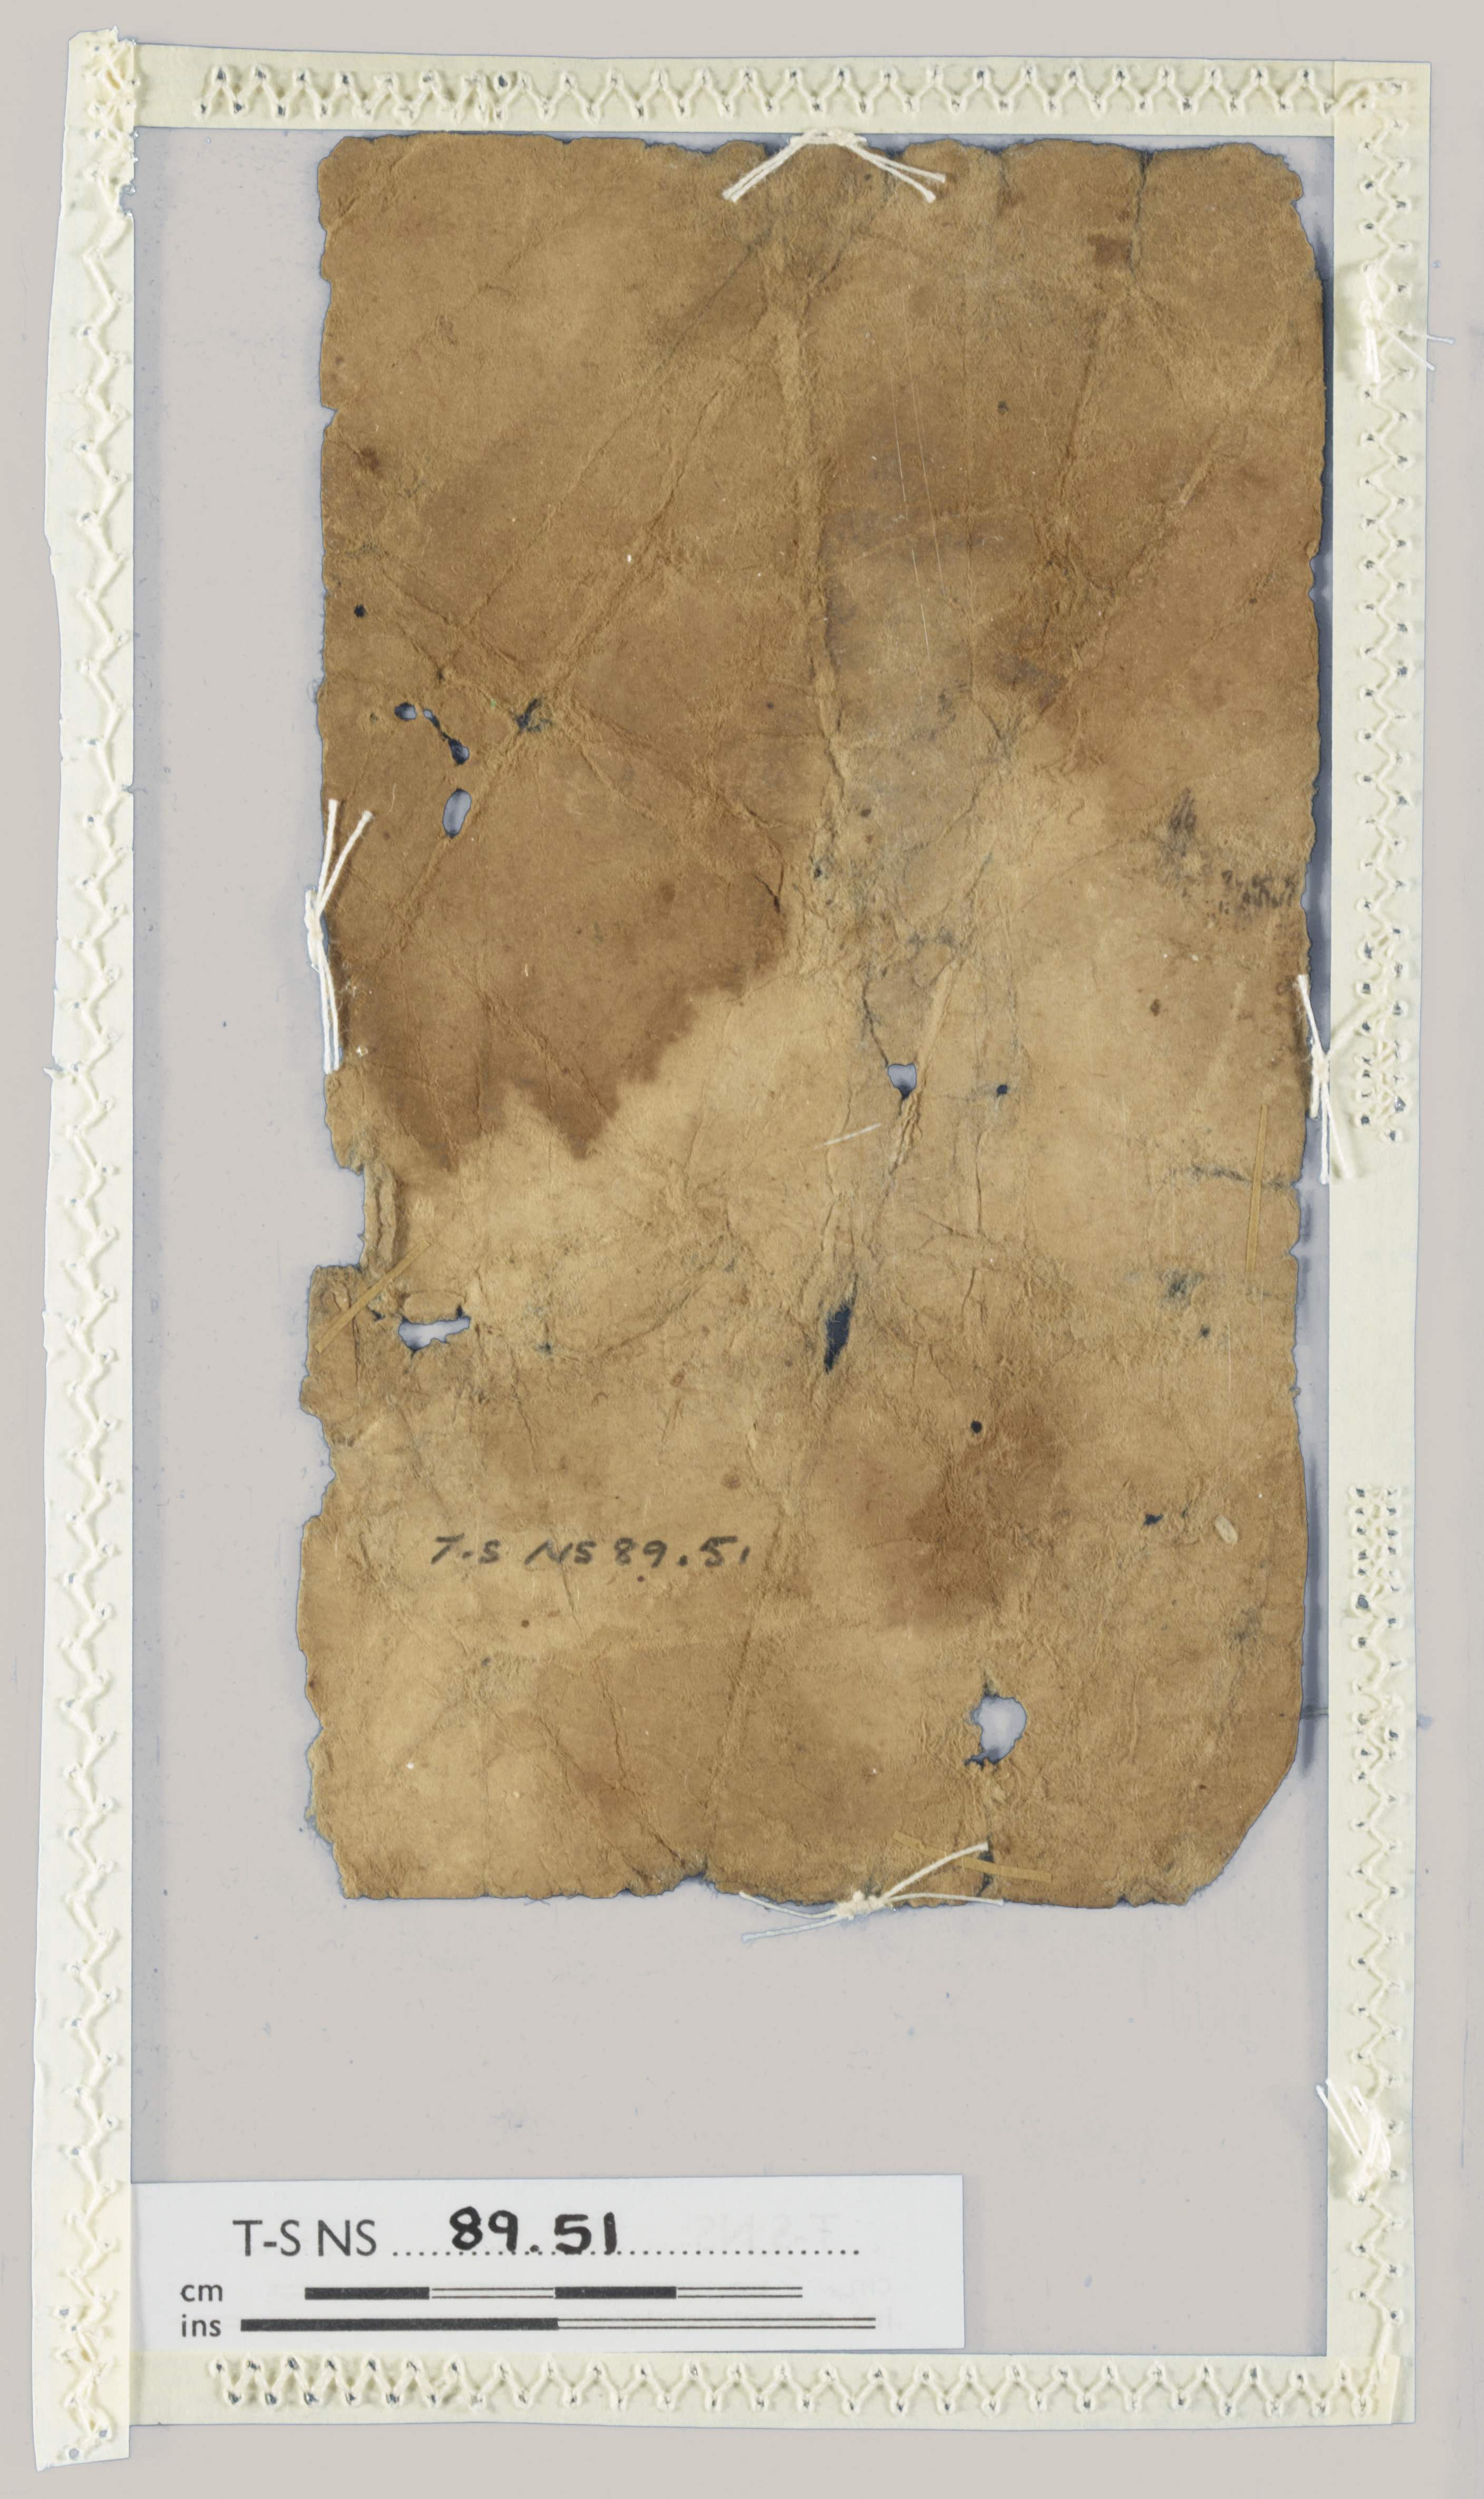 T-S NS 89.51
T-S NS 89.51
cm
ins